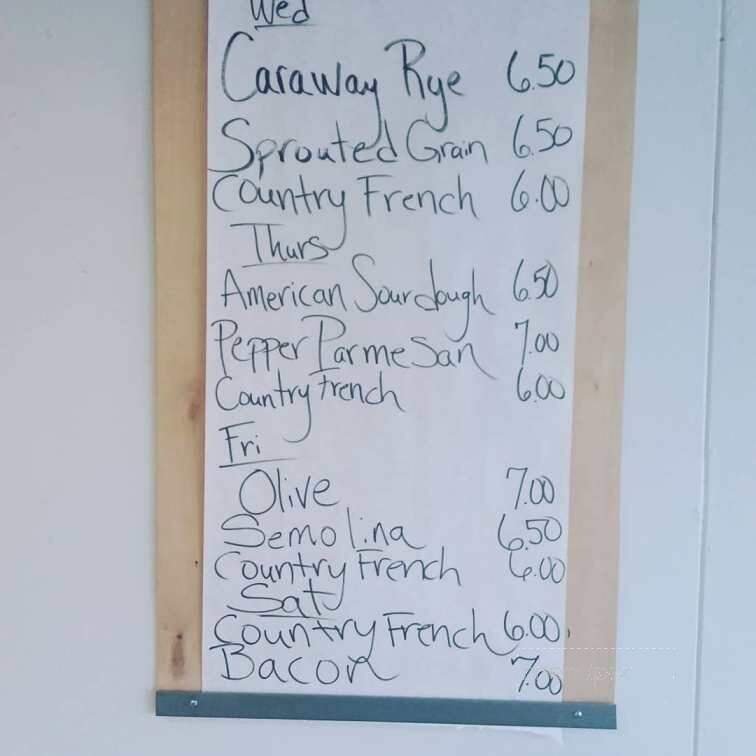 Wed
Caraway Rye 6.50
Sprouted Grain 6.50
Country French 6.00
Thurs
American Sourdough 6.50
Pepper Parmesan 7.00
Country French 6.00
Fri
Olive 7.00
Semolina 6.50
Country French 6.00
Sat
Country French 6.00
Bacon 7.00